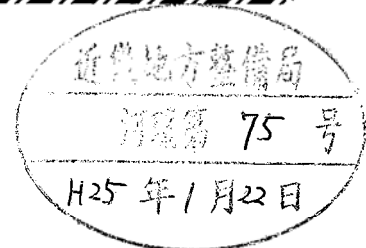 近畿地方整備局
河環第 75 号
H25年1月22日